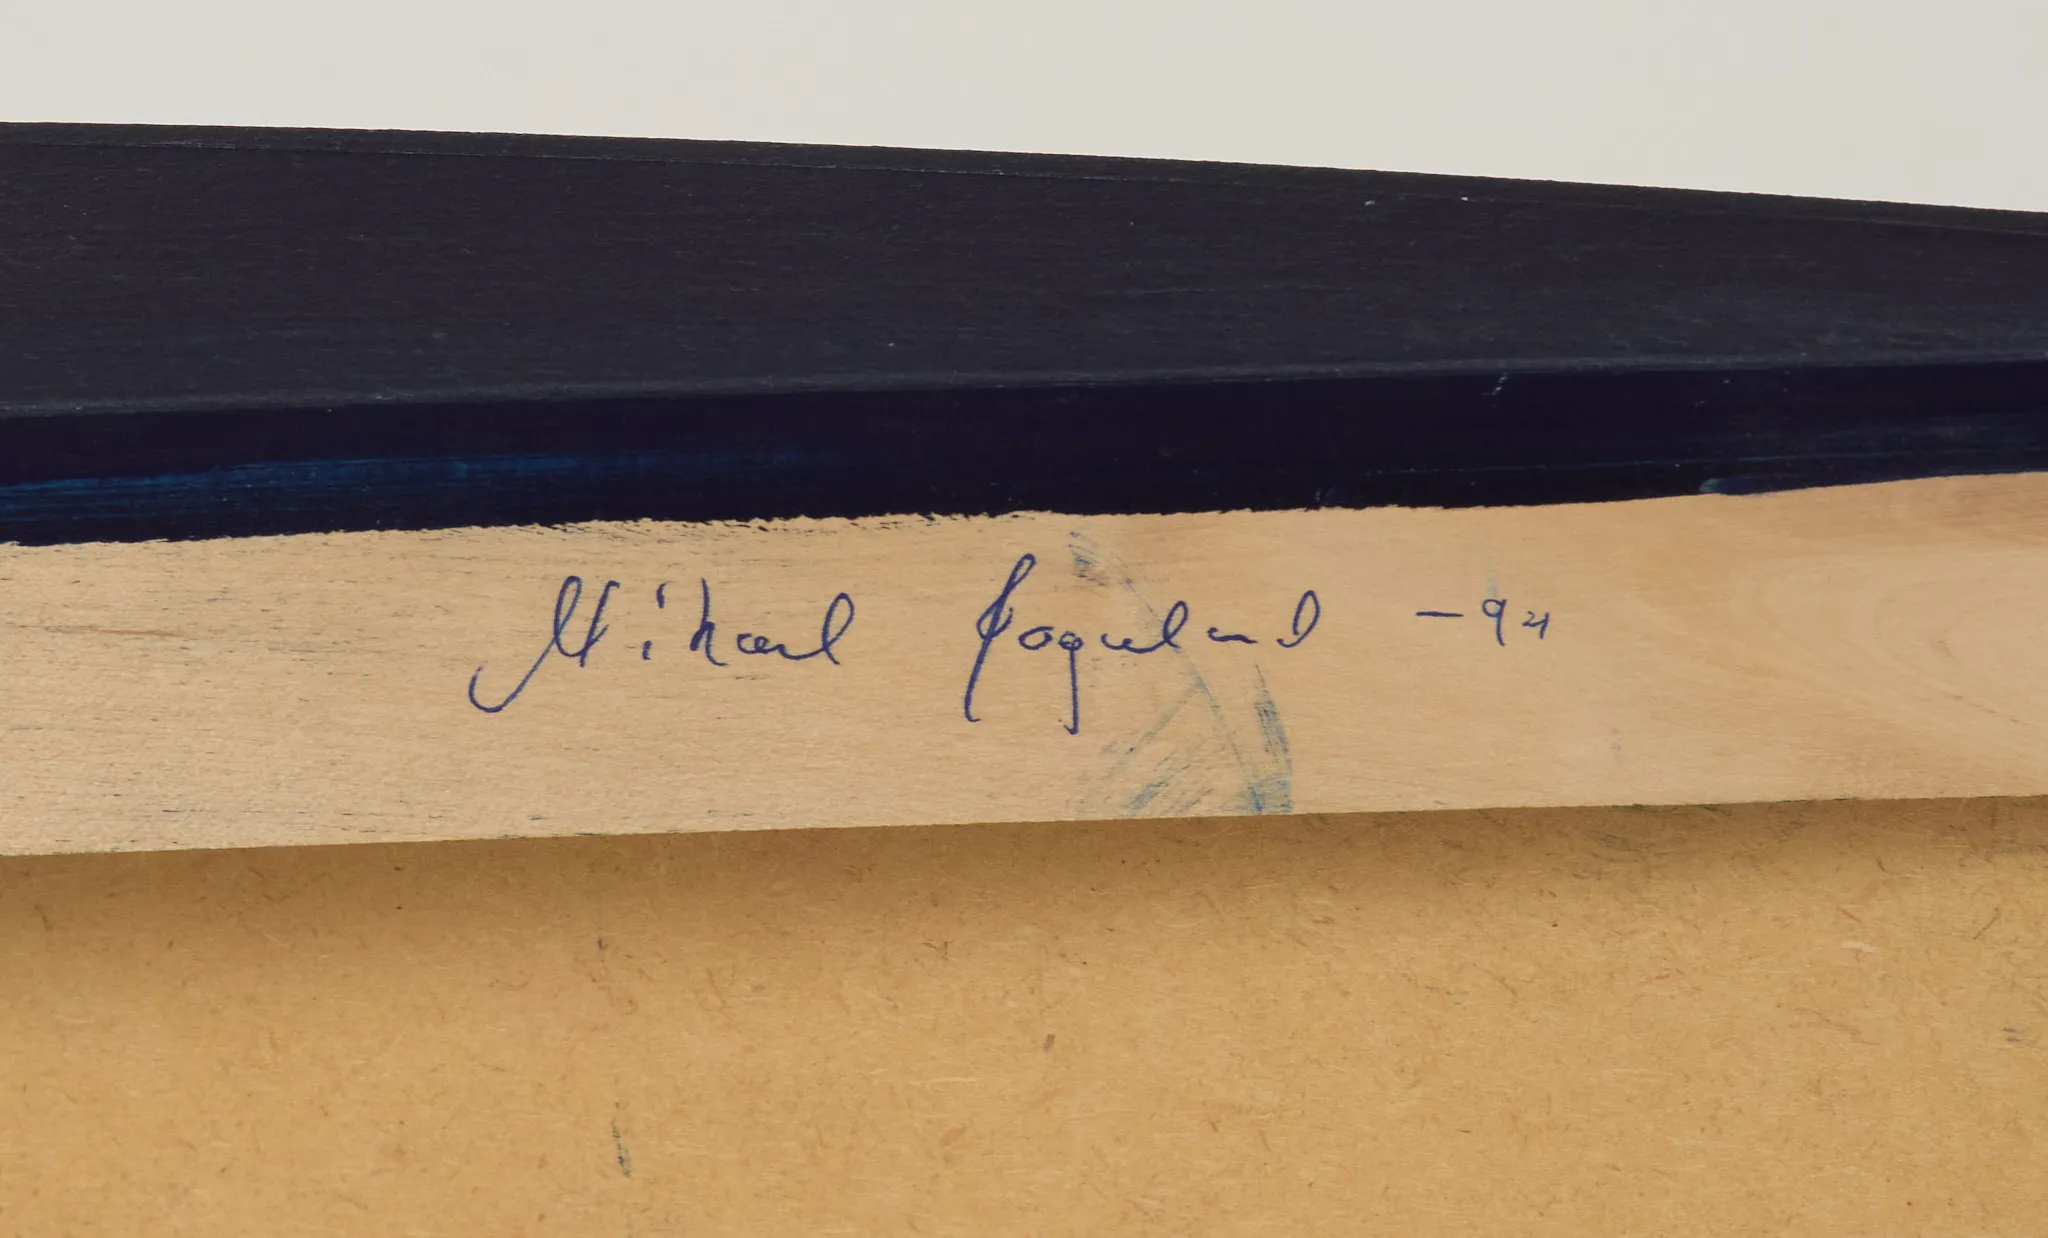 Mikael Fagerlund -94